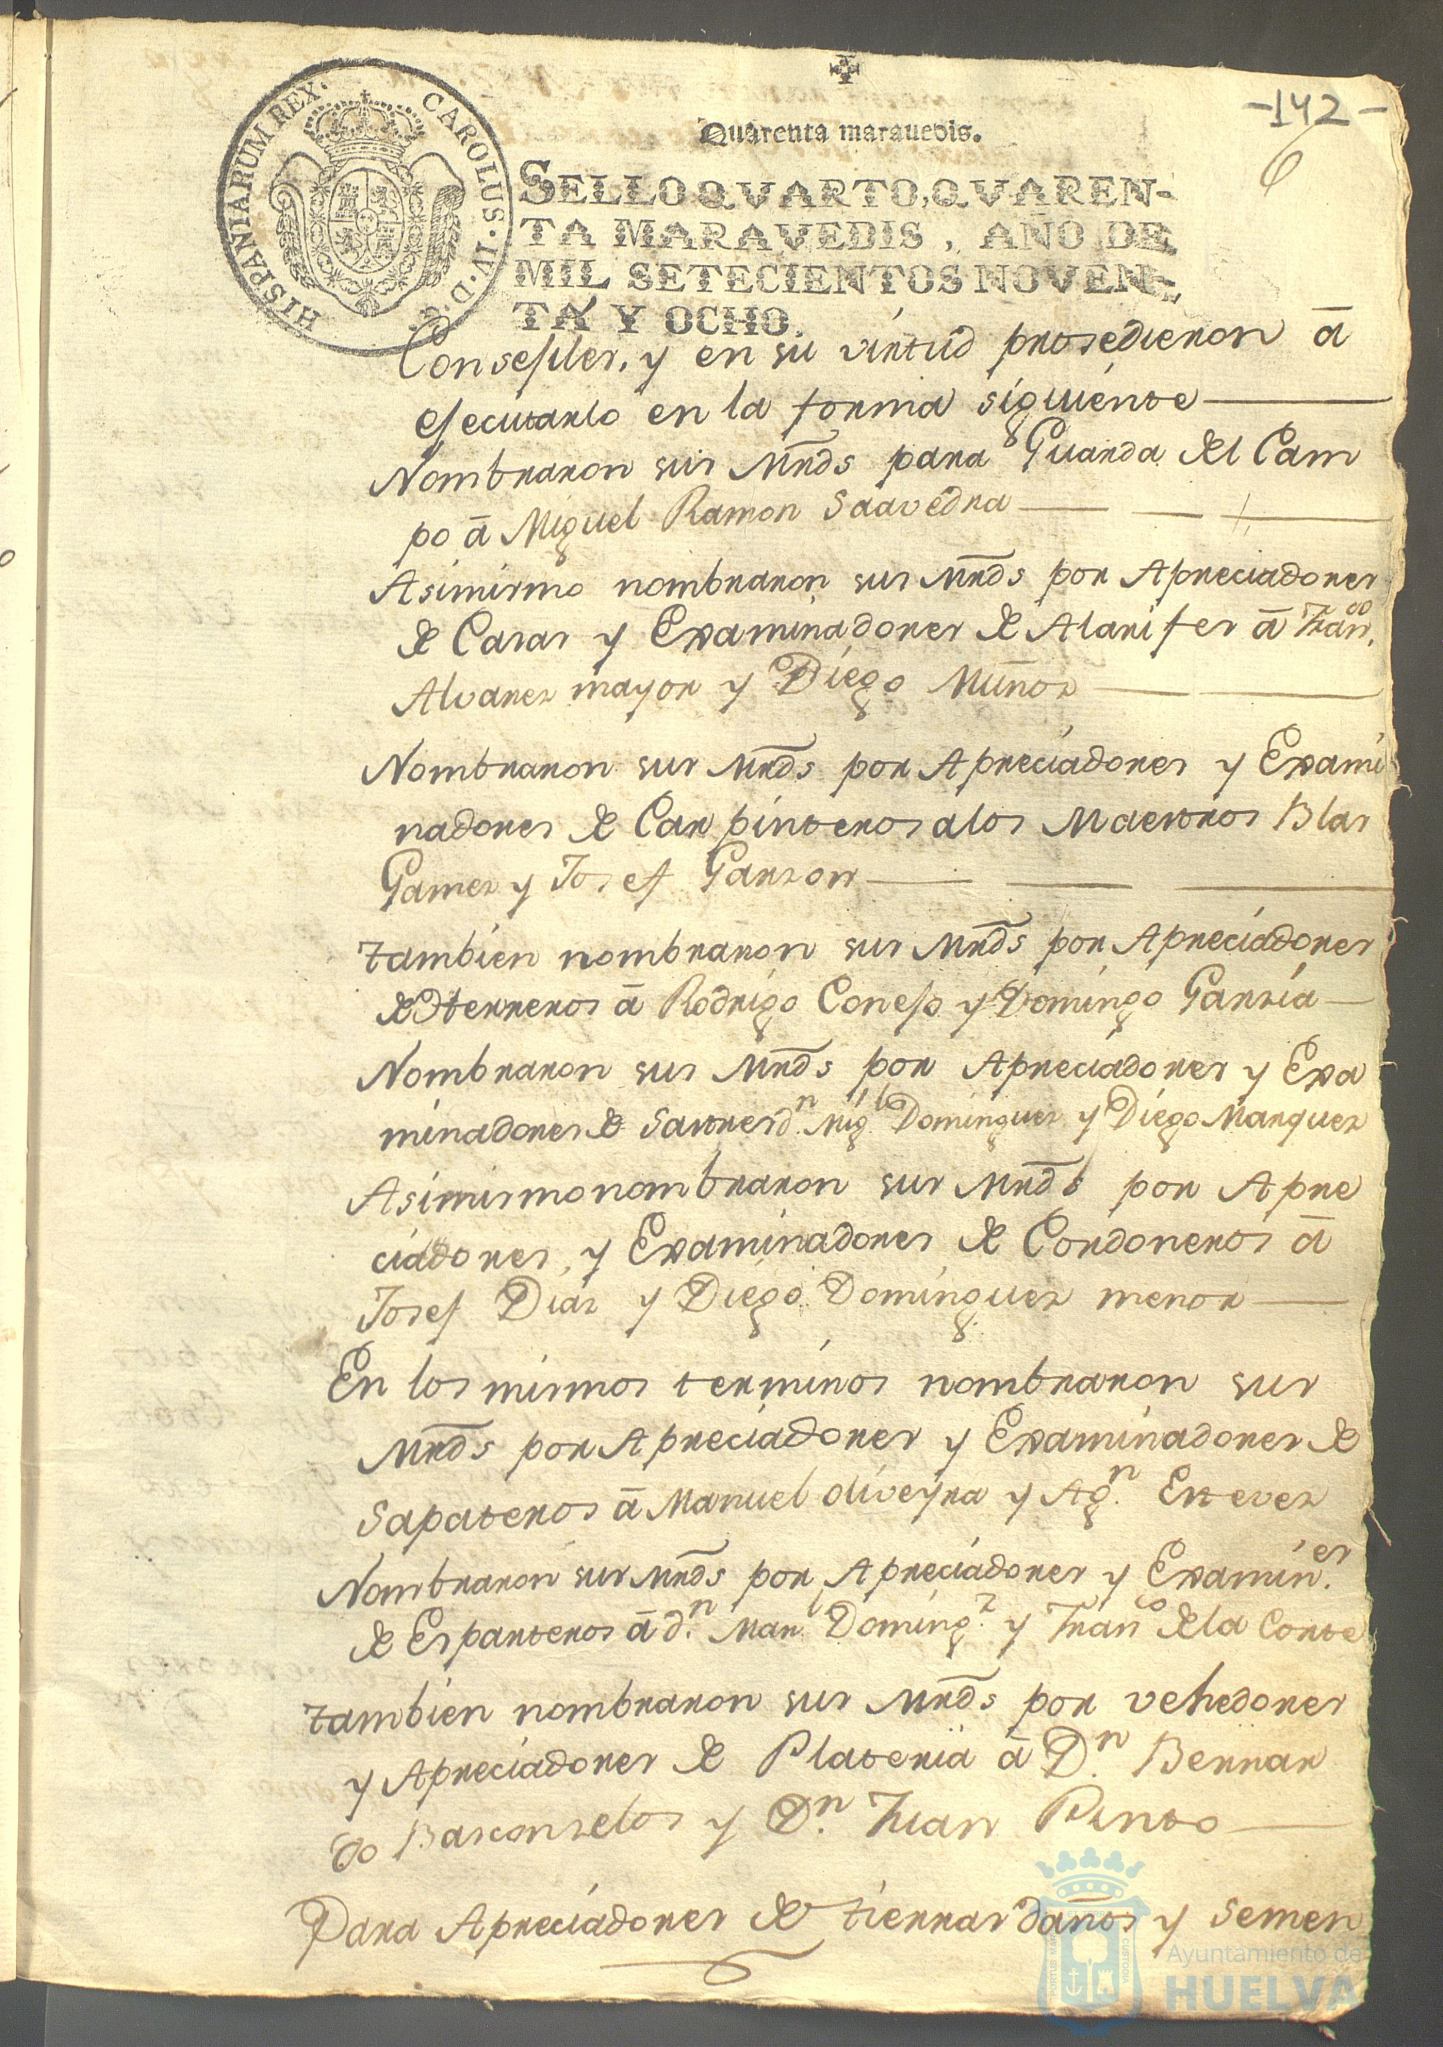 -142-
6
Quarenta marauedis.
HISPANIARUM REX. CAROLUS. IV. D. G.
SELLO QVARTO, QVAREN-
TA MARAVEDIS, AÑO DE
MIL SETECIENTOS NOVEN-
TA Y OCHO.
Consejiles, y en su virtud prosedieron ā
ejecutarlo en la forma siguiente
Nombraron sus Mrds para Guarda del Cam
po ā Miguel Ramon Saavedra
Asimismo nombraron sus Mrds por Apreciadores
de Casas y Examinadores de Alarifes ā Franco.
Alvarez mayor y Diego Muñoz
Nombraron sus Mrds por Apreciadores y Exami
nadores de Carpinteros alos Maestros Blas
Gamez y Josef Garzon
tambien nombraron sus Mrds por Apreciadores
de Herreros ā Rodrigo Conejo y Domingo Garzia
Nombraron sus Mrds por Apreciadores y Exa
minadores de Sastres dn. Migl. Dominguez y Diego Marquez
Asimismo nombraron sus Mrds por Apre
ciadores, y Examinadores de Cordoneros ā
Josef Diaz y Diego Dominguez menor
En los mismos terminos nombraron sus
Mrds por Apreciadores y Examinadores de
Sapateros ā Manuel Oliveyra y Agn. Estevez
Nombraron sus Mrds por Apreciadores y Examin.es
de Esparteros ā dn. Manl Doming.z y Frano de la Corte
tambien nombraron sus Mrds por vehedores
y Apreciadores de Plateria ā Dn. Bernar
do Basconzelos y Dn. Juan Pinto
Para Apreciadores de tierras daños y Semen
Ayuntamiento de
HUELVA